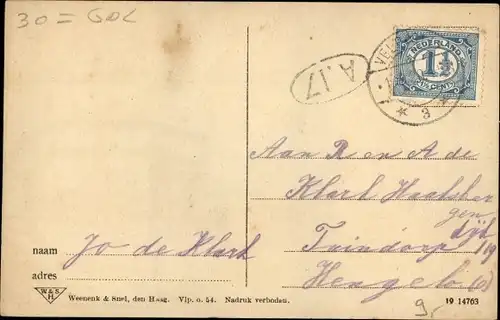 30 = GOL
NEDERLAND
1½
CENT
VEL
3
A.17
Aan R en A de
Klark
Tuindorp
Hengelo (O)
naam Jo de Klark
adres
W&S
H
Weenenk & Snel, den Haag. Vlp. o. 54. Nadruk verboden.
19 14763
9,